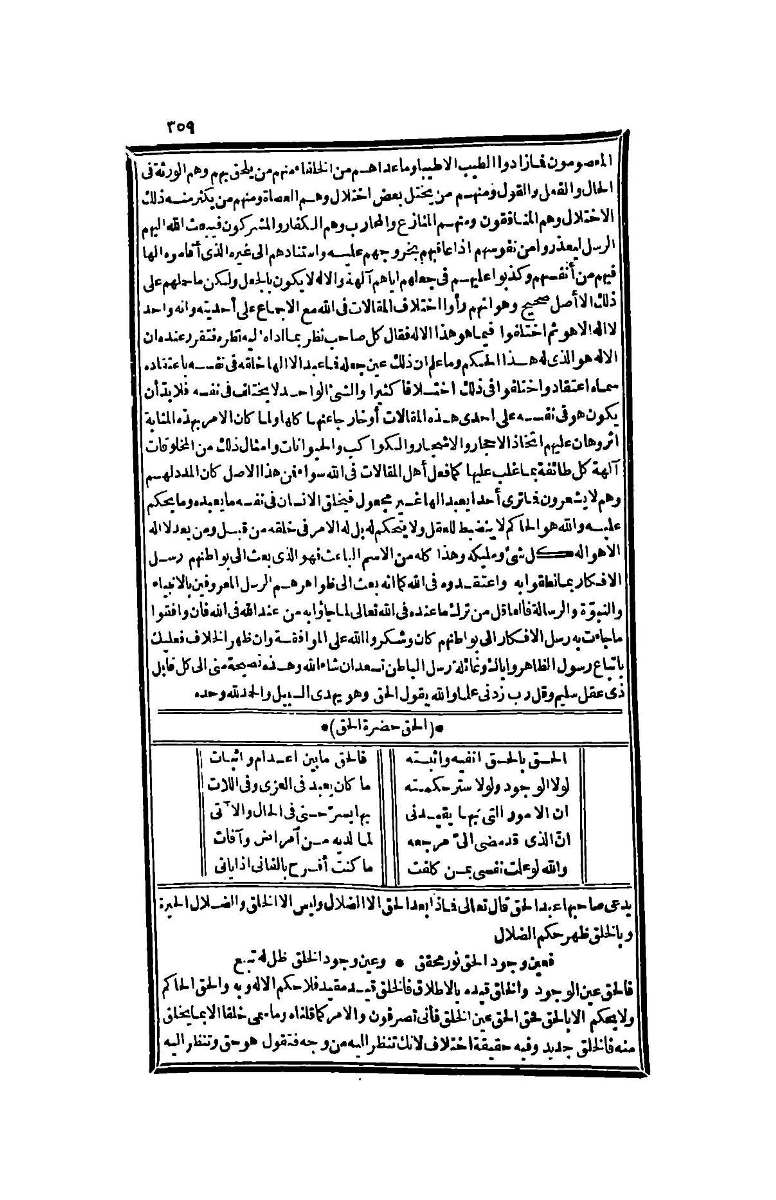 ٣٥٩
المعصومون فمازادوا الطيب الا طيبا وما عداهم من الخلفاء منهم من يلحق بهم وهم الورثة فى
الحال والفعل والقول ومنهم من يختل بعض اختلال وهم العصاة ومنهم من يكثر منه ذلك
الاختلال وهم المنافقون ومنهم المنازع والمحارب وهم الكفار والمشركون فيبعث الله اليهم
الرسل ليعذروا من نفوسهم اذا عاقبهم بخروجهم عليه واستنادهم الى غيره الذى أقاموه الها
فيهم من أنفسهم وكذبوا عليهم فى جعلهم اياهم آلهة والاله لا يكون بالجعل ولكن ما حملهم على
ذلك الأصل صحيح وهو انهم رأوا اختلاف المقالات فى الله مع الاجماع على أحديته وانه واحد
لا اله الا هو ثم اختلفوا فيما هو هذا الاله فقال كل صاحب نظر بما اداه اليه نظره فتقرر عنده ان
الاله هو الذى له هذا الحكم وما علم ان ذلك عين جعله فما عبد الا الها خلقه فى نفسه باعتقاده
سماه اعتقاد واختلفوا فى ذلك اختلافا كثيرا والشئ الواحد لا يختلف فى نفسه فلا بد أن
يكون هو فى نفسه على احدى هذه المقالات أو خارجا عنها كلها ولما كان الامر بهذه المثابة
اثر وهان عليهم اتخاذ الاحجار والاشجار والكواكب والحيوانات وامثال ذلك من المخلوقات
آلهة كل طائفة بما غلب عليها كما فعل أهل المقالات فى الله سواء فمن هذا الاصل كان المدد لهم
وهم لا يشعرون فما ترى أحدا يعبد الها غير مجعول فيخلق الانسان فى نفسه ما يعبده وما يحكم
عليه والله هو الحاكم لا ينضبط للعقل ولا يتحكم له بل له الامر فى خلقه من قبل ومن بعد لا اله
الا هو اله كل شئ ومليكه وهذا كله من الاسم الباعث فهو الذى بعث الى بواطنهم رسل
الافكار بما نطقوا به واعتقدوه فى الله كما انه بعث الى ظواهرهم الرسل المعروفين بالانبياء
والنبوّة والرسالة فالعاقل من ترك ما عنده فى الله تعالى لما جاؤا به من عند الله فى الله فان وافقوا
ما جاءت به رسل الافكار الى بواطنهم كان وشكروا الله على الموافقة وان ظهر الخلاف فعليك
باتباع رسول الظاهر واياك وغائلة رسل الباطن تسعد ان شاء الله وهذه نصيحة منى الى كل قابل
ذى عقل سليم وقل رب زدنى علما والله يقول الحق وهو يهدى السبيل والحمد لله وحده
*(الحق حضرة الحق)*
الحق بالحق انفيه واثبته فالحق ما بين اعدام واثبات
لولا الوجود ولولا ستر حكمته ما كان يعبد فى العزى وفى اللات
ان الامور التى بها يقيدنى بها يسرّحنى فى الحال والآتى
انّ الذى قد مضى الىّ مرجعه لما لديه من أمراض وآفات
والله لو علمت نفسى بمن كلفت ما كنت أفرح بالفانى اذا ياتى
يدعى صاحبها عبد الحق قال تعالى فماذا بعد الحق الا الضلال وليس الا الخلق والضلال الحيرة
وبالخلق ظهر حكم الضلال
فعين وجود الحق نور محقق * وعين وجود الخلق ظل له تبع
فالحق عين الوجود والخلق قيده بالاطلاق فالخلق قيد مقيد فلا حكم الا له وبه والحق الحاكم
ولا يحكم الا بالحق فحق الحق عين الخلق فأنى تصرفون والامر كما قلناه وما سمى خلقا الا بما يخلق
منه فالخلق جديد وفيه حقيقة اختلاف لانك تنظر اليه من وجه فتقول هو حق وتنظر اليه